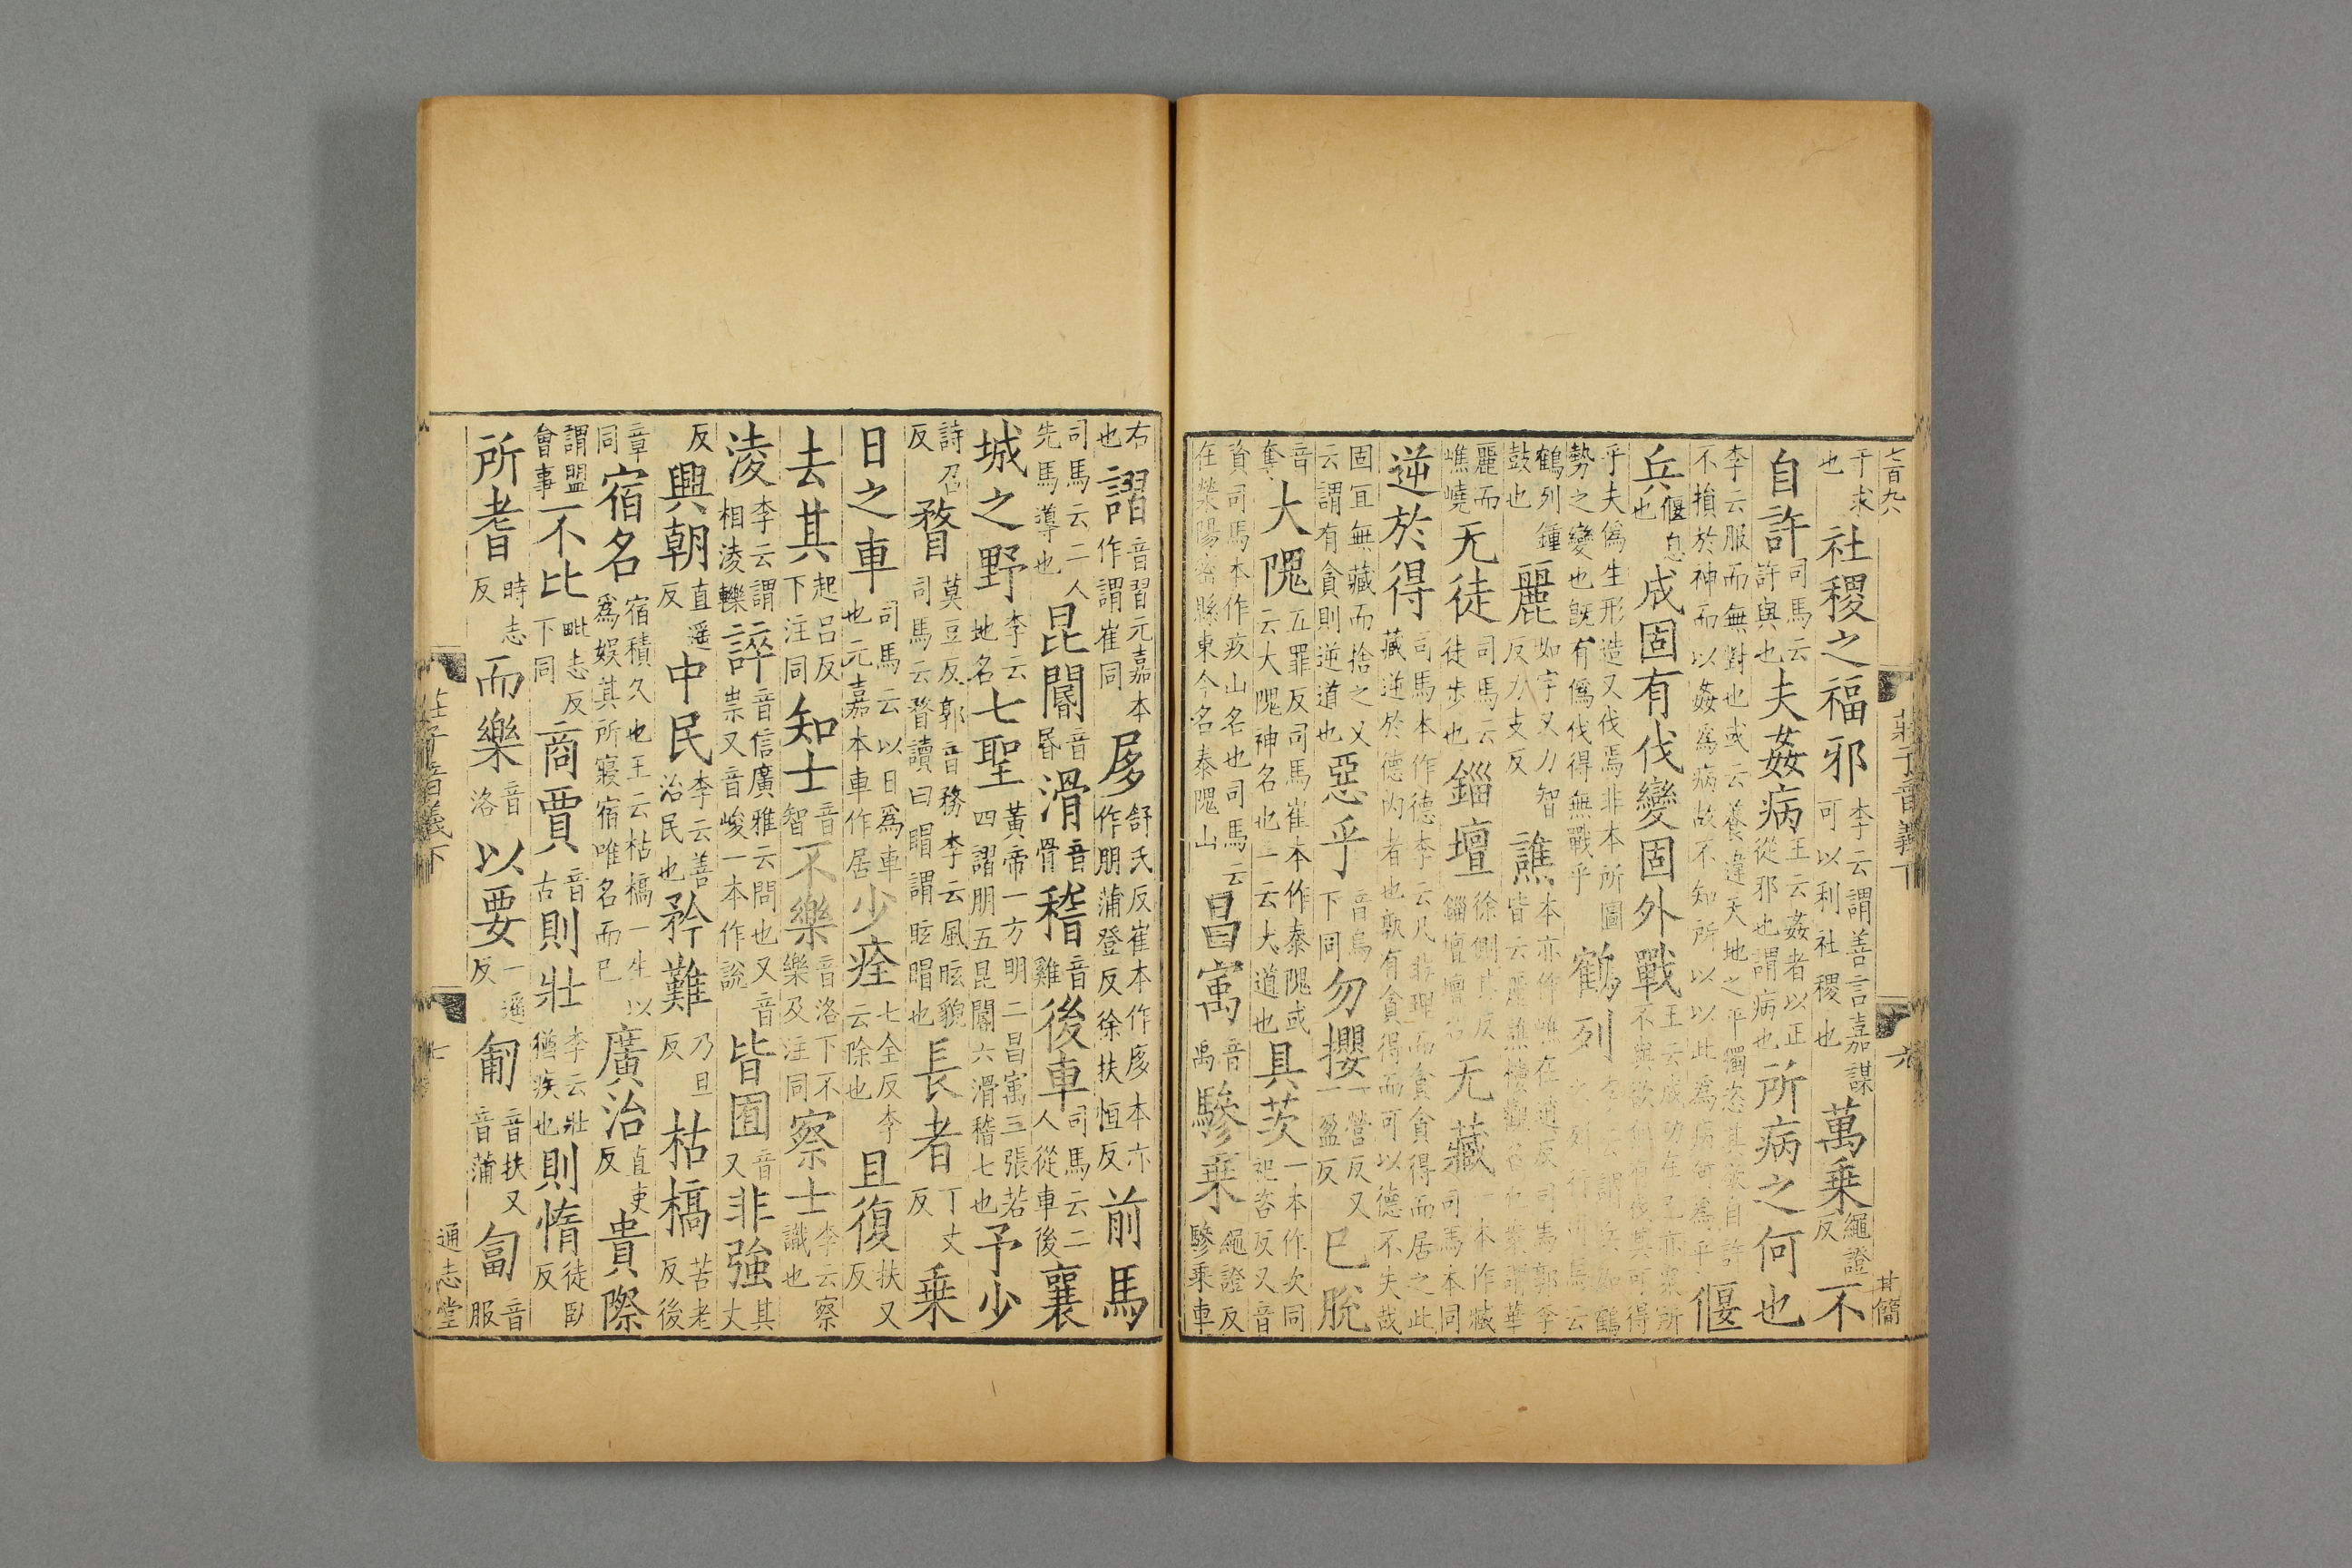 七百九八
干求也社稷之福邪李云謂善言嘉謀可以利社稷也萬乗繩證反不
自許司馬云許與也夫姦病王云姦者以正從邪也謂病也所病之何也
李云服而無對也或云養違天地之平獨恣其欲自許不損於神而以姦爲病故不知所以以此爲病何爲乎偃
兵偃息也成固有伐變固外戰王云成功在己亦衆所不與欲無有伐其可得
乎夫僞生形造又伐焉非本所圖勢之變也旣有僞伐得無戰乎鶴列李云謂兵如鶴列而行司馬云
鶴列鍾鼓也麗如字又力智反力支反譙本亦作嶕在遥反司馬郭李皆云麗譙樓觀名也案謂華
麗而嶕嶢无徒司馬云徒步也錙壇徐側其反錙壇壇名无藏一本作臧司馬本同
逆於得司馬本作德李云凡非理而貪貪得而居之此藏逆於德内者也孰有貪得而可以德不失哉
固宜無藏而捨之又云謂有貪則逆道也惡乎音烏下同勿攖一營反又一盈反巳脫
音奪大隗五罪反司馬崔本作泰隗或云大隗神名也一云大道也具茨一本作次同祀咨反又音
資司馬本作疾山名也司馬云在滎陽密縣東今名泰隗山昌寓音禹驂乗繩證反驂乗車
莊子音義下
六
甘簡
右也謵音習元嘉本作謂崔同㢋舒氏反崔本作㢋本亦作朋蒲登反徐扶恒反前馬
司馬云二人先馬導也昆閽音昬滑音骨稽音雞後車司馬云二人從車後襄
城之野李云地名七聖黃帝一方明二昌寓三張若四謵朋五昆閽六滑稽七也予少
詩召反瞀莫豆反郭音務李云風眩貌司馬云瞀讀曰䀮謂眩䀮也長者丁丈反乗
日之車司馬云以日爲車也元嘉本車作居少痊七全反李云除也且復扶又反
去其起吕反下注同知士音智不樂音洛下不樂及注同察士李云察識也
淩李云謂相淩轢誶音信廣雅云問也又音崇又音峻一本作說皆囿音又非強其丈
反興朝直遥反中民李云善治民也矜難乃旦反枯槁苦老反後
章同宿名宿積久也王云枯槁一生以爲娱其所寢宿唯名而已廣治直吏反貴際
謂盟會事不比毗志反下同商賈音古則壯李云壯猶疾也則惰徒臥反
所耆時志反而樂音洛以要一遥反匍音扶又音蒲匐音服
莊子音義下
七
通志堂